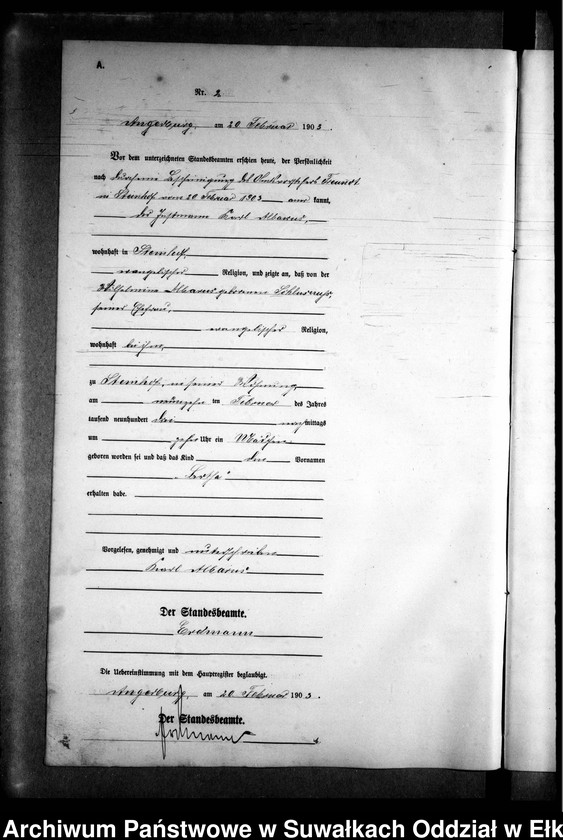 A.
Nr. 2
Angerburg, am 20 Februar 1903.
Vor dem unterzeichneten Standesbeamten erschien heute, der Persönlichkeit
nach durch eine Bescheinigung des
in Steinhof vom 20 Februar 1903 anerkannt,
der Instmann Karl
wohnhaft in Steinhof,
evangelischer Religion, und zeigte an, daß von der
Wilhelmine geborenen
seiner Ehefrau,
evangelischer Religion,
wohnhaft bei ihm,
zu Steinhof, in seiner Wohnung,
am neunzehn ten Februar des Jahres
tausend neunhundert drei nachmittags
um Uhr ein Mädchen
geboren worden sei und daß das Kind den Vornamen
„Bertha“
erhalten habe.
Vorgelesen, genehmigt und unterschrieben
Karl
Der Standesbeamte.
Erdmann
Die Uebereinstimmung mit dem Hauptregister beglaubigt.
Angerburg, am 20 Februar 1903.
Der Standesbeamte.
Erdmann
Archiwum Państwowe w Suwałkach Oddział w Ełk